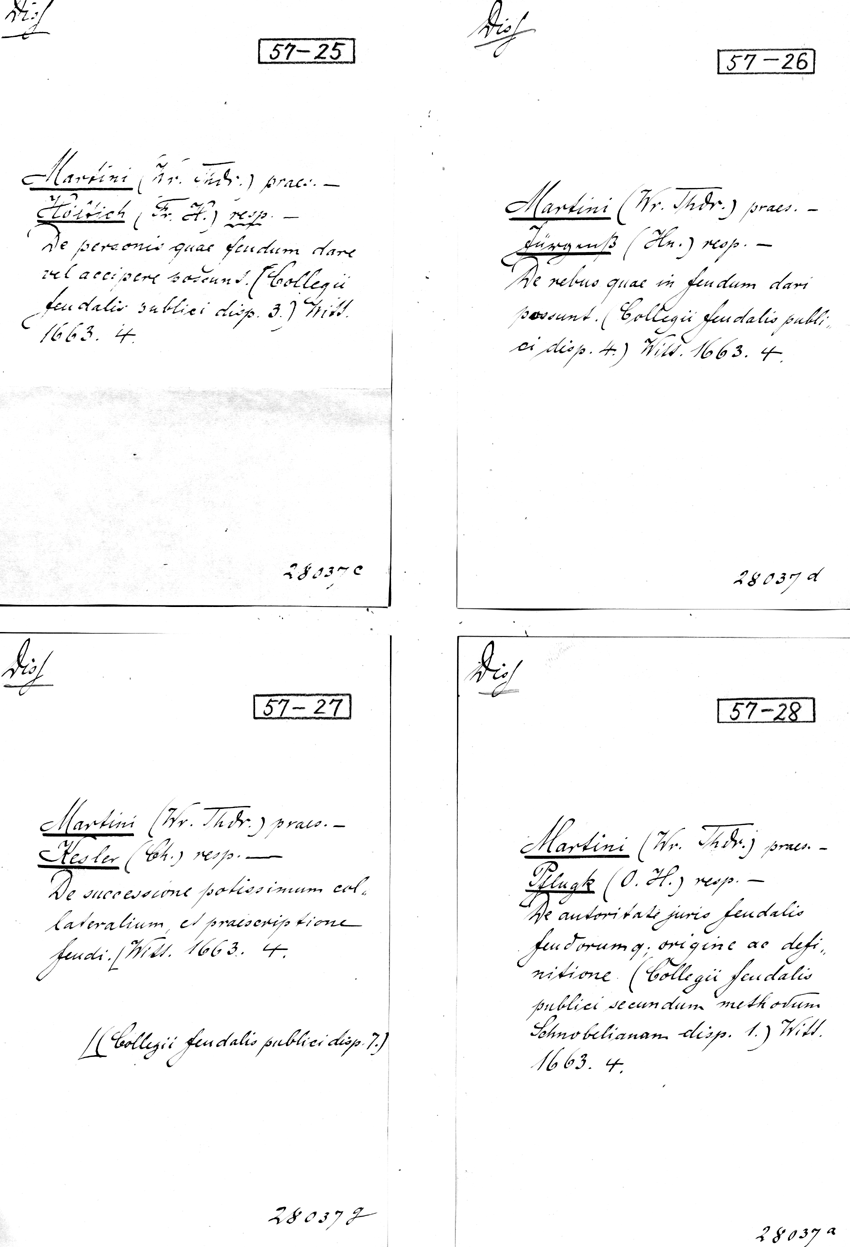 Diss
57-25
Martini (Wr. Thdr.) praes. —
Höltich (Fr. H.) resp. —
De personis quae feudum dare
vel accipere possunt. (Collegii
feudalis publici disp. 3.) Witt.
1663. 4.
28037 c
Diss
57-26
Martini (Wr. Thdr.) praes. —
Jürgenß (Hn.) resp. —
De rebus quae in feudum dari
possunt. (Collegii feudalis publi-
ci disp. 4.) Witt. 1663. 4.
28037 d
Diss
57-27
Martini (Wr. Thdr.) praes. —
Kesler (Ch.) resp. —
De successione potissimum col-
lateralium, et praescriptione
feudi. [Witt. 1663. 4.
[(Collegii feudalis publici disp. 7.)
28037 g
Diss
57-28
Martini (Wr. Thdr.) praes. —
Pflugk (O. H.) resp. —
De autoritate juris feudalis
feudorumq; origine ac defi-
nitione. (Collegii feudalis
publici secundum methodum
Schnobelianam disp. 1.) Witt.
1663. 4.
28037 a